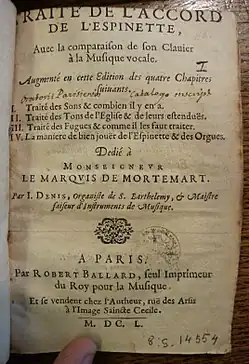 TRAITÉ DE L'ACCORD
DE L'ESPINETTE,
Auec la comparaison de son Clauier
à la Musique vocale.
I
Augmenté en cette Edition des quatre Chapitres
suivants.
I. Traité des Sons & combien il y en a.
II. Traité des Tons de l'Eglise & de leurs estenduës.
III. Traité des Fugues & comme il les faut traiter.
IV. La maniere de bien joüer de l'Espinette & des Orgues.
Dedié à
MONSEIGNEVR
LE MARQVIS DE MORTEMART.
Par I. DENIS, Organiste de S. Barthelemy, & Maistre
faiseur d'Instruments de Musique.
A PARIS.
Par ROBERT BALLARD, seul Imprimeur
du Roy pour la Musique.
Et se vendent chez l'Autheur, rue des Arsis
à l'Image Saincte Cecile.
M. DC. L.
8°. S. 14554